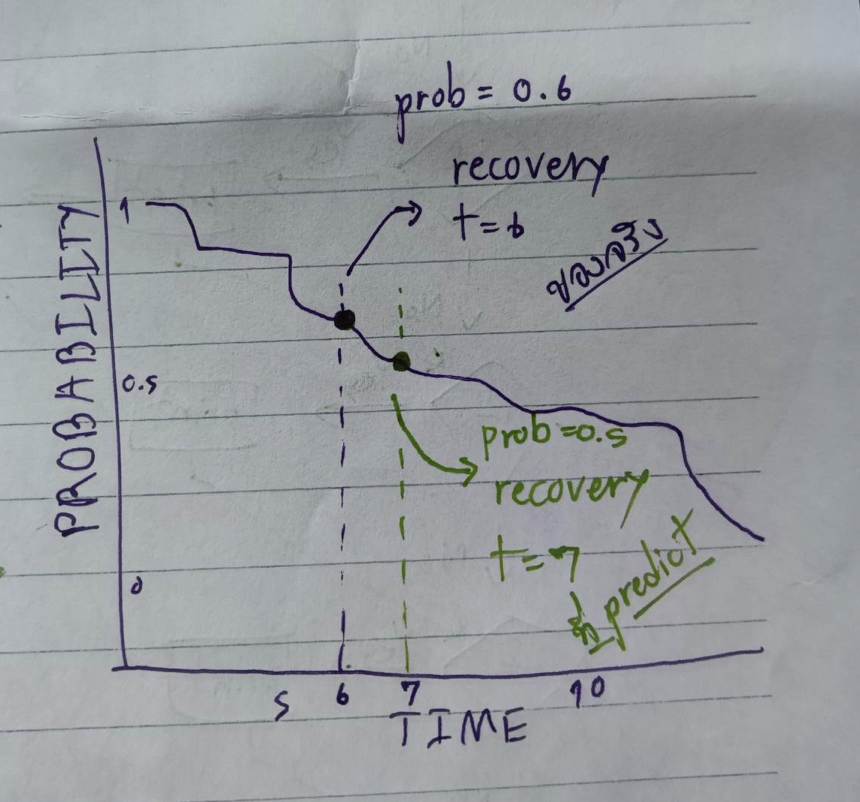 prob = 0.6
recovery
t=6
ของจริง
PROBABILITY
1
0.5
0
prob=0.5
recovery
t=7
ที่ predict
5 6 7 10
TIME